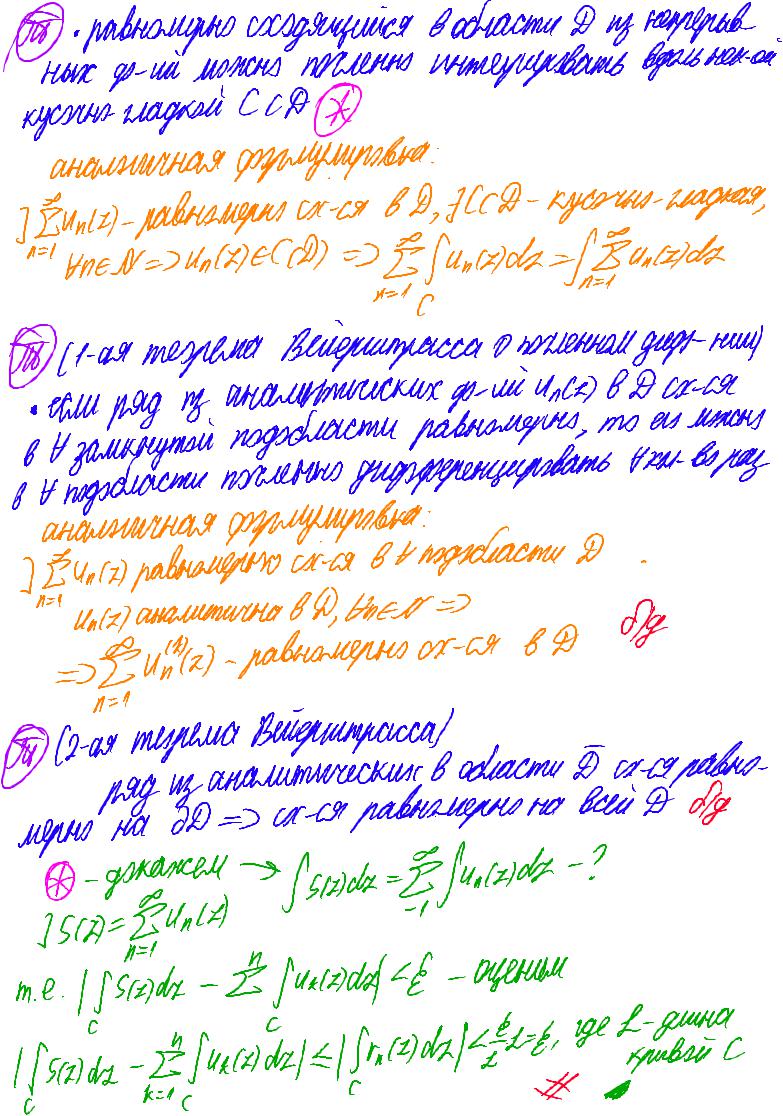 Th • равномерно сходящийся в области D из непрерыв-
ных ф-ий можно почленно интегрировать вдоль нек-ой
кусочно-гладкой C⊂D (*)
аналогичная формулировка:
] ∑_{n=1}^{∞} uₙ(z) - равномерно сх-ся в D, ] C⊂D - кусочно-гладкая,
∀n∈N => uₙ(z)∈C(D) => ∑_{n=1}^{∞} ∫_C uₙ(z)dz = ∫ ∑_{n=1}^{∞} uₙ(z)dz
Th (1-ая теорема Вейерштрасса о почленном диф-нии)
• если ряд из аналитических ф-ий uₙ(z) в D сх-ся
в ∀ замкнутой подобласти равномерно, то его можно
в ∀ подобласти почленно дифференцировать ∀ кол-во раз
аналогичная формулировка:
] ∑_{n=1}^{∞} uₙ(z) равномерно сх-ся в ∀ подобласти D
uₙ(z) аналитична в D, ∀n∈N =>
=> ∑_{n=1}^{∞} uₙ^{(k)}(z) - равномерно сх-ся в D б/д
Th (2-ая теорема Вейерштрасса)
ряд из аналитических в области D̅ сх-ся равно-
мерно на ∂D => сх-ся равномерно на всей D б/д
(*) - докажем → ∫S(z)dz = ∑_{-1}^{∞} ∫uₙ(z)dz - ?
] S(z) = ∑_{n=1}^{∞} uₙ(z)
т.е. |∫_C S(z)dz - ∑^{n} ∫_C uₖ(z)dz| < ε - оценим
|∫_C S(z)dz - ∑_{k=1}^{n} ∫_C uₖ(z)dz| ≤ |∫_C rₙ(z)dz| < ε/L·L = ε, где L - длина
кривой C
#